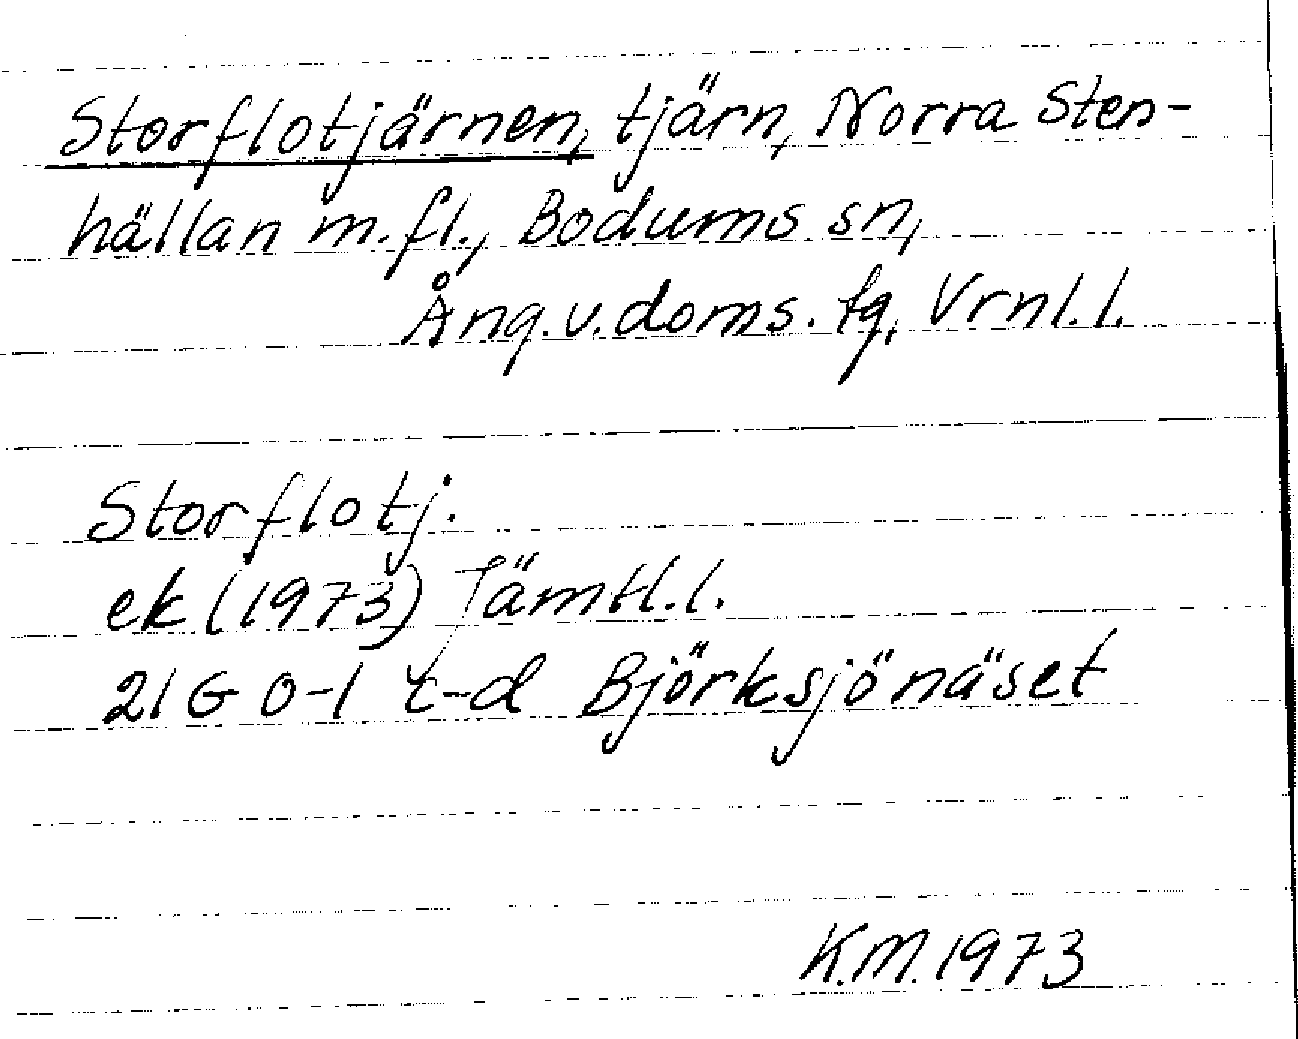 Storflotjärnen, tjärn, Norra Sten-
hällan m.fl., Bodums sn,
Ång.v.doms.tg, Vrnl.l.
Storflotj.
ek (1973) Jämtl.l.
21G 0-1 c-d Björksjönäset
K.M. 1973